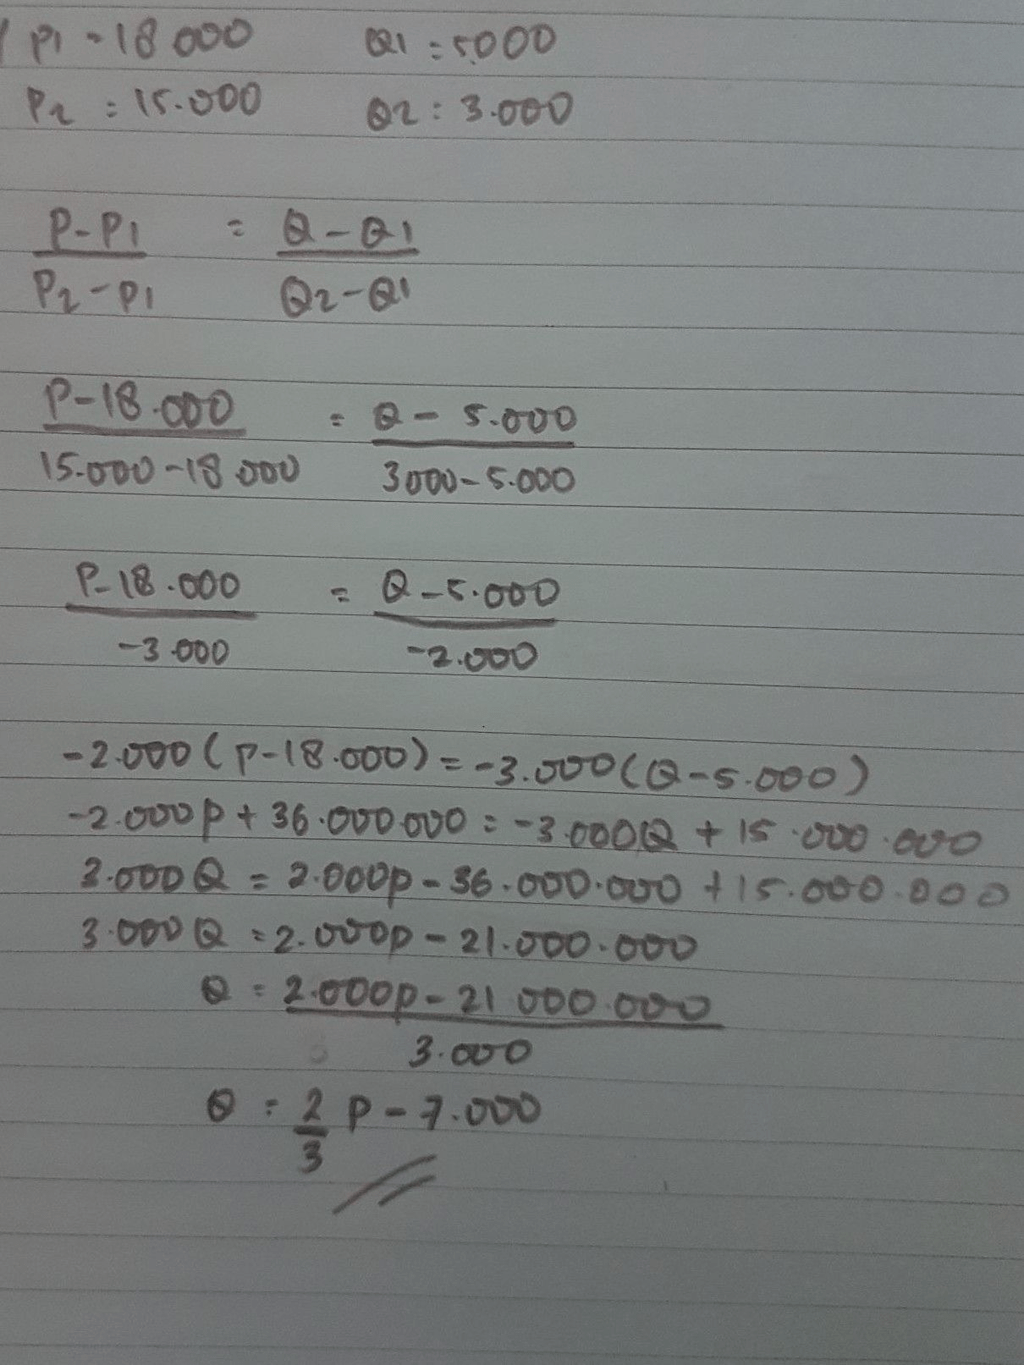 P1 = 18 000 Q1 = 5.000
P2 = 15.000 Q2 = 3.000
P-P1 = Q-Q1
P2-P1 Q2-Q1
P-18.000 = Q - 5.000
15.000-18 000 3000-5.000
P-18.000 = Q-5.000
-3.000 -2.000
-2.000(P-18.000) = -3.000(Q-5.000)
-2.000P + 36.000.000 = -3.000Q + 15.000.000
3.000Q = 2.000P - 36.000.000 + 15.000.000
3.000Q = 2.000P - 21.000.000
Q = 2.000P - 21 000.000
3.000
Q = 2 P - 7.000
3